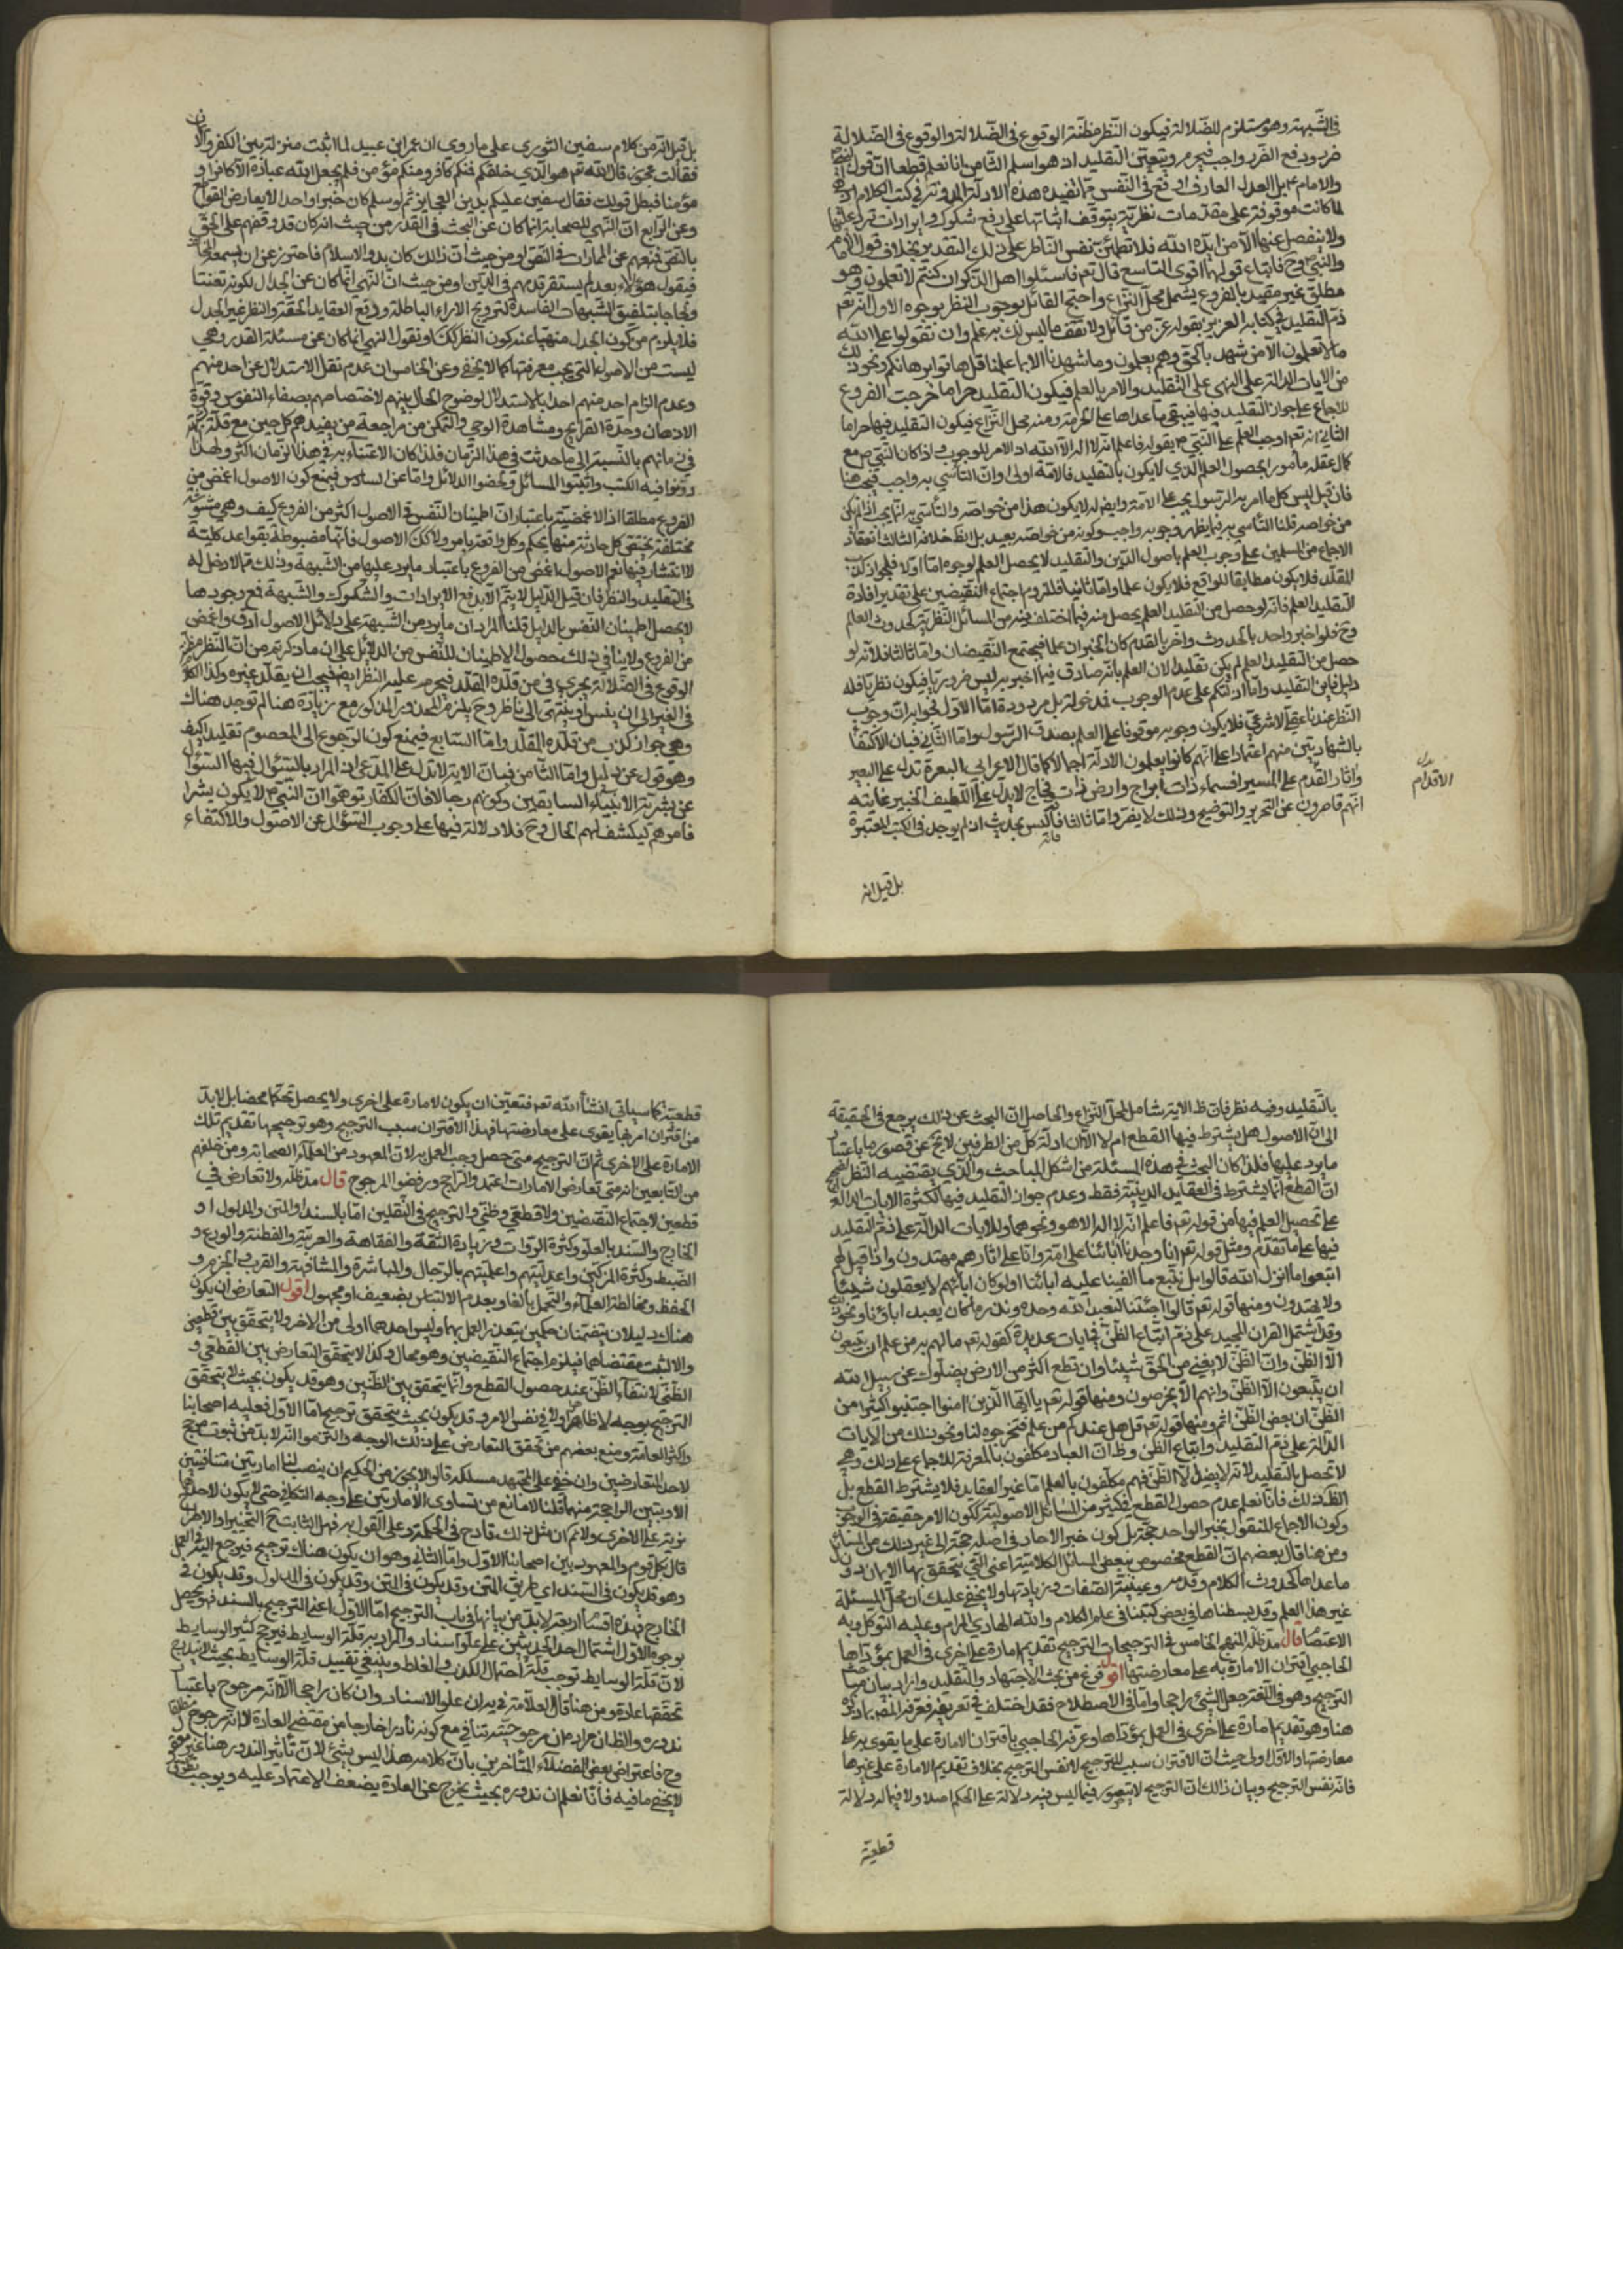 في الشبهة وهو مستلزم للضلالة فيكون النظر مظنة الوقوع في الضلالة والوقوع في الضلالة
ضرر ودفع الضرر واجب فيحرم ويتعين التقليد اذ هو اسلم الثامن انا نعلم قطعا ان قول
والامام بل العدل العارف اوقع في النفس مما تفيده هذه الادلة المدونة في كتب الكلام
لما كانت موقوفة على مقدمات نظرية يتوقف اثباتها على دفع شكوك وايرادات ترد عليها
ولا ينفصل عنها الا من ايده الله فلا تطمئن نفس الناظر على ذلك التقدير بخلاف قول الامام
والنبي وح فاتباع قولهما اقوى التاسع قال تعم فاسئلوا اهل الذكر ان كنتم لا تعلمون وهو
مطلق غير مقيد بالفروع يشمل محل النزاع واحتج القائل بوجوب النظر بوجوه الاول انه تعم
ذم التقليد في كتابه العزيز بقوله عز من قائل ولا تقف ما ليس لك به علم وان تقولوا على الله
ما لا تعلمون الا من شهد بالحق وهم يعلمون وما شهدنا الا بما علمنا قل هاتوا برهانكم ونحو ذلك
من الايات الدالة على النهي على التقليد والامر بالعلم فيكون التقليد حراما خرجت الفروع
للاجماع على جواز التقليد فيها فيبقى ما عداها على الحرمة ومنه محل النزاع فيكون التقليد فيها حراما
الثاني انه تعم اوجب العلم على النبي بقوله فاعلم انه لا اله الا الله اذ الامر للوجوب واذا كان النبي مع
كمال عقله مأمورا بحصول العلم الذي لا يكون بالتقليد فالامة اولى وان التأسي به واجب فيجب هنا
فان قيل ليس كل ما امر به الرسول يجب على الامة وايضا لم لا يكون هذا من خواصه والتأسي به انما يجب اذا لم يكن
من خواصه قلنا التأسي به فيما يظهر وجوبه واجب وكونه من خواصه بعيد بل الظ خلافه الثالث انعقاد
الاجماع من المسلمين على وجوب العلم باصول الدين والتقليد لا يحصل العلم لوجوه اما اولا فلجواز كذب
المقلد فلا يكون مطابقا للواقع فلا يكون علما واما ثانيا فللزوم اجتماع النقيضين على تقدير افادة
التقليد العلم فانه لو حصل من التقليد العلم يحصل منه فيما اختلف فيه من المسائل النظرية كحدوث العالم
وح فلو اخبر واحد بالحدوث واخر بالقدم كان الخبران علما فيجتمع النقيضان واما ثالثا فلانه لو
حصل من التقليد العلم لم يكن تقليدا لان العلم بانه صادق فيما اخبر به ليس ضروريا فيكون نظريا فله
دليل فاين التقليد واما ادلتكم على عدم الوجوب فمدخولة بل مردودة اما الاول فجوابه ان وجوب
النظر عندنا عقلي لا شرعي فلا يكون وجوبه موقوفا على العلم بصدق الرسول واما الثاني فبان الاكتفا
بالشهادتين منهم اعتمادا على انهم كانوا يعلمون الادلة اجمالا كما قال الاعرابي البعرة تدل على البعير
واثار القدم على المسير افسماء ذات ابراج وارض ذات فجاج لا يدل على اللطيف الخبير غايته
انهم قاصرون عن التحرير والتوضيح وذلك لا يضر واما ثالثا فانه ليس بحديث اذ لم يوجد في الكتب المعتبرة
بدل
الاقدام
بل قيل انه
بل قيل انه من كلام سفين الثوري على ما روى ان عمر ابن عبيد لما اثبت منزلة بين الكفر والايمان
فقالت عجوز قال الله تعم هو الذي خلقكم فمنكم كافر ومنكم مؤمن فلم يجعل الله عباده الا كافرا و
مؤمنا فبطل قولك فقال سفين عليكم بدين العجايز ثم لو سلم كان خبرا واحدا لا يعارض القواطع
وعن الرابع ان النهي للصحابة انما كان عن البحث في القدر من حيث انه كان قد وقفهم على الحق
بالنص فمنعهم عن المماراة في النص او من حيث ان ذلك كان بدو الاسلام فاحترز عن ان يسمعه
فيقول هؤلاء بعد لم يستقر قدمهم في الدين او من حيث ان النهي انما كان عن الجدال لكونه تعنتا
ولجاجا بتلفيق الشبهات الفاسدة لترويج الاراء الباطلة ودفع العقايد الحقة والنظر غير الجدل
فلا يلزم من كون الجدل منهيا عنه كون النظر كك او نقول النهي انما كان عن مسئلة القدر وهي
ليست من الاصول التي يجب معرفتها كما لا يخفى وعن الخامس ان عدم نقل الاستدلال عن احد منهم
وعدم الزام احد منهم احدا بالاستدلال لوضوح الحال بينهم لاختصاصهم بصفاء النفوس وقوة
الاذهان وحدة القرايح ومشاهدة الوحي والتمكن من مراجعة من يفيدهم كل حين مع قلة
في زمانهم بالنسبة الى ما حدثت في هذا الزمان فلذا كان الاعتناء به في هذا الزمان اكثر ولهذا
دونوا فيه الكتب واثبتوا المسائل ولخصوا الدلائل واما عن السادس فبمنع كون الاصول اغمض من
الفروع مطلقا اذ الاغمضية باعتبار ان اطمينان النفس في الاصول اكثر من الفروع كيف وهي متشتتة
مختلفة يختص كل حادثة منها بحكم وكل واقعة بامر ولا كك الاصول فانها مضبوطة بقواعد كلية
لا انتشار فيها نعم الاصول اغمض من الفروع باعتبار ما يرد عليها من الشبهة وذلك مما لا دخل له
في التقليد والنظر فان قيل الدليل لا يتم الا بدفع الايرادات والشكوك والشبهة فمع وجودها
لا يحصل اطمينان النفس بالدليل قلنا المراد ان ما يرد من الشبهة على دلائل الاصول ادق واغمض
من الفروع ولا ينافي ذلك حصول الاطمينان للنفس من الدلائل على ان ما ذكرتم من ان النظر مظنة
الوقوع في الضلالة يجري في من قلده المقلد فيحرم عليه النظر ايضا فيجب ان يقلد غيره وكذا الكلام
في الغير الى ان يتسلسل او ينتهي الى ناظر وح يلزم المحذور المذكور مع زيادة هنا لم توجد هناك
وهي جواز كذب من قلده المقلد واما السابع فبمنع كون الرجوع الى المعصوم تقليدا كيف
وهو قول عن دليل واما الثامن فبان الاية لا تدل على المدعى اذ المراد بالسؤال فيها السؤال
عن بشرية الانبياء السابقين وكونهم رجالا فان الكفار توهموا ان النبي لا يكون بشرا
فامرهم ليكشف لهم الحال وح فلا دلالة فيها على وجوب السؤال عن الاصول والاكتفاء
بالتقليد وفيه نظر فان ظ الاية شامل لمحل النزاع والحاصل ان البحث عن ذلك يرجع في الحقيقة
الى ان الاصول هل يشترط فيها القطع ام لا الا ان ادلة كل من الطرفين لا يخ عن قصور ما باعتبار
ما يرد عليها فلذا كان البحث في هذه المسئلة من اشكل المباحث والذي يقتضيه النظر الصحيح
ان القطع انما يشترط في العقايد الدينية فقط وعدم جواز التقليد فيها لكثرة الايات الدالة
على تحصيل العلم فيها من قوله تعم فاعلم انه لا اله الا هو ونحوهما وللايات الدالة على ذم التقليد
فيها على ما تقدم ومثل قوله تعم انا وجدنا آبائنا على امة وانا على اثارهم مهتدون واذا قيل لهم
اتبعوا ما انزل الله قالوا بل نتبع ما الفينا عليه ابائنا اولو كان اباؤهم لا يعقلون شيئا
ولا يهتدون ومنها قوله تعم قالوا اجئتنا لنعبد الله وحده ونذر ما كان يعبد اباؤنا ونحو
وقد اشتمل القران المجيد على ذم اتباع الظن في ايات عديدة كقوله تعم ما لهم به من علم ان يتبعون
الا الظن وان الظن لا يغني من الحق شيئا وان تطع اكثر من الارض يضلوك عن سبيل الله
ان يتبعون الا الظن وانهم الا يخرصون ومنها قوله تعم يا ايها الذين امنوا اجتنبوا كثيرا من
الظن ان بعض الظن اثم ومنها قوله تعم قل هل عندكم من علم فتخرجوه لنا ونحو ذلك من الآيات
الدالة على ذم التقليد واتباع الظن وظ ان العباد مكلفون بالمعرفة للاجماع على ذلك وهي
لا تحصل بالتقليد لانه لا يفيد الا الظن فهم مكلفون بالعلم اما غير العقايد فلا يشترط القطع بل
الظن لك فانا نعلم عدم حصول القطع في كثير من المسائل الاصولية ككون الامر حقيقة في الوجوب
وكون الاجماع المنقول بخبر الواحد حجة بل كون خبر الاحاد في اصله حجة الى غير ذلك من المسائل
ومن هنا قال بعضهم ان القطع مخصوص ببعض المسائل الكلامية اعني التي يتحقق بها الايمان دون
ما عداها كحدوث الكلام وقدمه وعينية الصفات وزيادتها ولا يخفى عليك ان محل المسئلة
غير هذا العلم وقد بسطناها في بعض كتبنا في علم الكلام والله الهادي المرام وعليه التوكل وبه
الاعتصام قال مد ظله المنهج الخامس في الترجيحات الترجيح تقديم امارة على اخرى في العمل بمؤداها
الحاجبي اقتران الامارة به على معارضتها اقول فرغ من بحث الاجتهاد والتقليد واراد بيان
الترجيح وهو في اللغة جعل الشئ راجحا واما في الاصطلاح فقد اختلف في تعريفه فعرفه المصنف بما ذكره
هنا وهو تقديم امارة على اخرى في العمل بمؤداها وعرفه الحاجبي باقتران الامارة على ما يقوى به على
معارضتها والاول اولى حيث ان الاقتران سبب للترجيح لا نفس الترجيح بخلاف تقديم الامارة على غيرها
فانه نفس الترجيح وبيان ذلك ان الترجيح لا يتصور فيما ليس فيه دلالة على الحكم اصلا ولا فيما له دلالة
قطعية
قطعية كما سيأتي انشأ الله تعم فتعين ان يكون لامارة على اخرى ولا يحصل تحكما محضا بل لا بد
من اقتران امر بما يقوى على معارضتها فهذا الاقتران سبب الترجيح وهو ترجيحها تقديم تلك
الامارة على الاخرى ثم ان الترجيح متى حصل وجب العمل به لان المعهود من العلماء الصحابة ومن خلفهم
من التابعين انه متى تعارض الامارات اعتمد والراجح ورفضوا المرجوح قال مد ظله ولا تعارض في
قطعين لاجتماع النقيضين ولا قطعي وظني والترجيح في النقلين اما بالسند او المتن والمدلول او
الخارج والسند بالعلو وكثرة الرواة وزيادة الثقة والفقاهة والعربية والفطنة والورع و
الضبط وكثرة المزكين واعدليتهم واعلميتهم بالرجال والمباشرة والمشافهة والقرب والجزم و
الحفظ ومخالطة العلماء والتحمل بالغا وبعدم الالتباس بضعيف او مجهول اقول التعارض ان يكون
هناك دليلان يقتضيان حكمين يتعذر العمل بهما وليس احدهما اولى من الاخر ولا يتحقق بين قطعيين
والا لثبت مقتضاهما فيلزم اجتماع النقيضين وهو محال وكذا لا يتحقق التعارض بين القطعي و
الظني لانتفاء الظن عند حصول القطع وانما يتحقق بين الظنين وهو قد يكون بحيث لا يتحقق
الترجيح بوجه لا ظاهرا ولا في نفس الامر وقد يكون بحيث يتحقق ترجيح اما الاول فعليه اصحابنا
واكثر العامة ومنع بعضهم من تحقق التعارض على ذلك الوجه والتزموا انه لا بد من ثبوت مرجح
لاحد المتعارضين وان خفى على المجتهد مسلكه قالوا لا يجوز من الحكيم ان ينصب لنا امارتين متنافيتين
الاولتين الراجحة منهما قلنا لا مانع من تساوي الامارتين على وجه التكافي حتى لا يكون لاحدهما
مزية على الاخرى ولا نم ان مثل ذلك قادح في الحكمة وعلى القول به فهل الثابت ح التخيير او الاطراح
قال بكل قوم والمعهود بين اصحابنا الاول واما الثاني وهو ان يكون هناك ترجيح فيرجع اليه في العمل
وهو قد يكون في السند اي طريق المتن وقد يكون في المتن وقد يكون في المدلول وقد يكون في
الخارج فهذه اقسام اربعة لا بد من بيانها في باب الترجيح اما الاول اعني الترجيح بالسند فهو يحصل
بوجوه الاول اشتمال احد الحديثين على علو اسناد والمراد به قلة الوسايط فيرجح كثير الوسايط
لان قلة الوسايط توجب قلة احتمال الكذب والغلط وينبغي تقييد قلة الوسايط بحيث لا يبلغ
تحققها عادة ومن هنا قال العلامة في يه ان علو الاسناد وان كان راجحا الا انه مرجوح باعتبار
ندوره والظ ان مراده ان مرجوحيته تنافي مع كونه نادرا خارجا من مقتضى العادة الا انه مرجوح مطلقا
وح فاعتراض بعض الفضلاء المتأخرين بان كلامه هذا ليس بشئ لان تأثير الندور هنا غير معقول
لا يخفى ما فيه فانا نعلم ان ندوره بحيث يخرج عن العادة يضعف الاعتماد عليه ويوجب